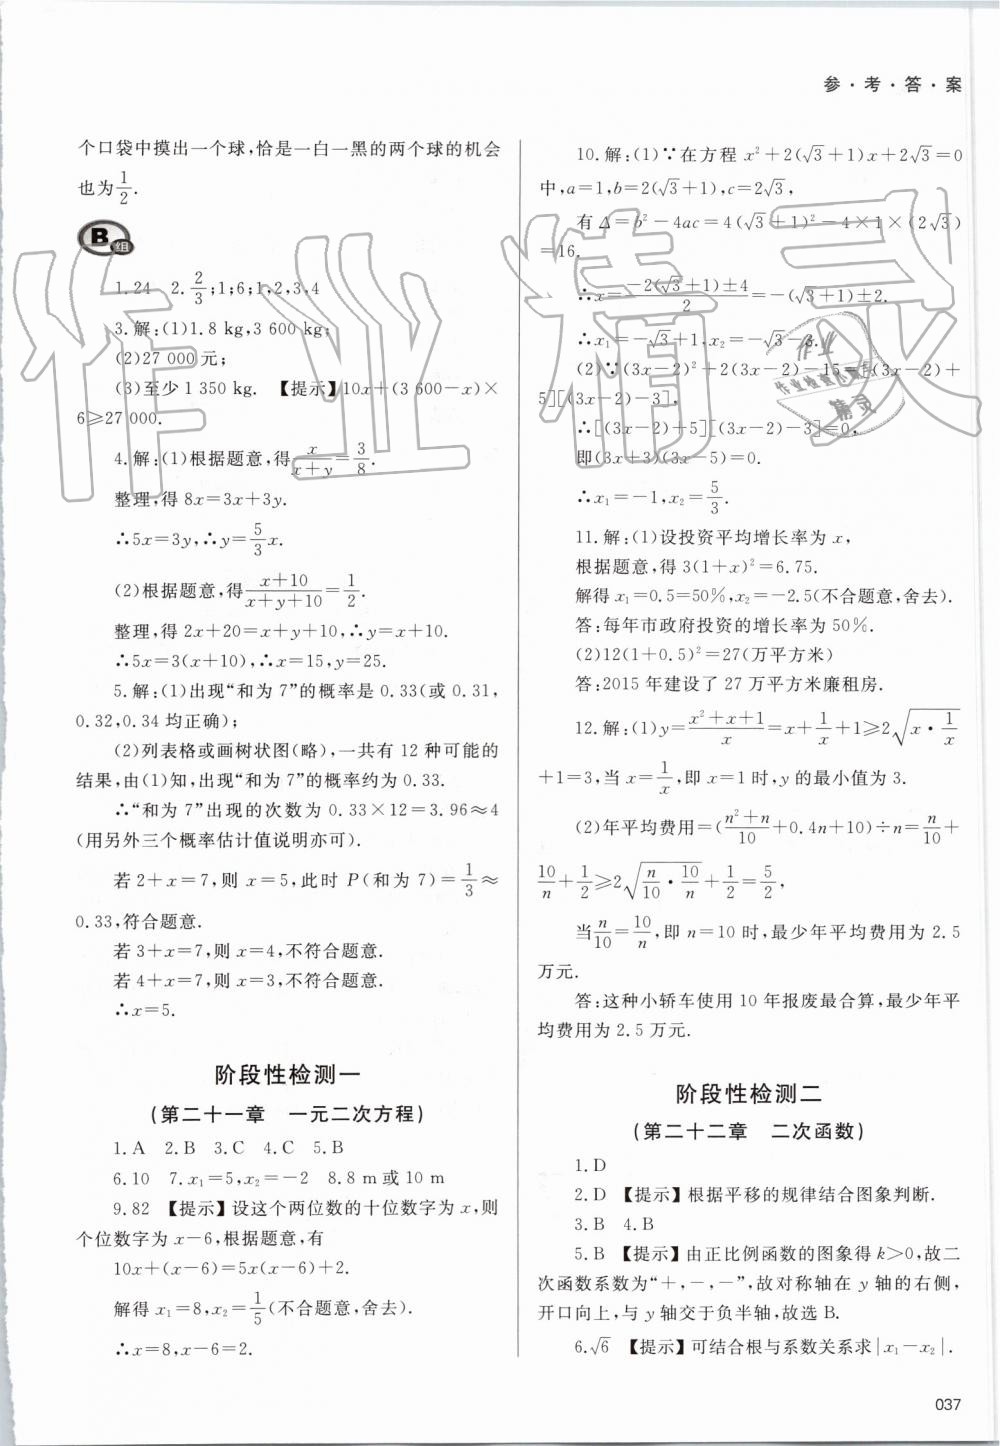 参·考·答·案
个口袋中摸出一个球,恰是一白一黑的两个球的机会
也为1/2.
B组
1.24 2.2/3;1;6;1,2,3,4
3.解:(1)1.8 kg,3 600 kg;
(2)27 000元;
(3)至少1 350 kg. 【提示】10x+(3 600-x)×
6≥27 000.
4.解:(1)根据题意,得x/(x+y)=3/8.
整理,得8x=3x+3y.
∴5x=3y,∴y=5/3x.
(2)根据题意,得(x+10)/(x+y+10)=1/2.
整理,得2x+20=x+y+10,∴y=x+10.
∴5x=3(x+10),∴x=15,y=25.
5.解:(1)出现“和为7”的概率是0.33(或0.31,
0.32,0.34均正确);
(2)列表格或画树状图(略),一共有12种可能的
结果,由(1)知,出现“和为7”的概率约为0.33.
∴“和为7”出现的次数为0.33×12=3.96≈4
(用另外三个概率估计值说明亦可).
若2+x=7,则x=5,此时P(和为7)=1/3≈
0.33,符合题意.
若3+x=7,则x=4,不符合题意.
若4+x=7,则x=3,不符合题意.
∴x=5.
阶段性检测一
(第二十一章 一元二次方程)
1.A 2.B 3.C 4.C 5.B
6.10 7.x₁=5,x₂=-2 8.8 m或10 m
9.82 【提示】设这个两位数的十位数字为x,则
个位数字为x-6,根据题意,有
10x+(x-6)=5x(x-6)+2.
解得x₁=8,x₂=1/5(不合题意,舍去).
∴x=8,x-6=2.
10.解:(1)∵在方程x²+2(√3+1)x+2√3=0
中,a=1,b=2(√3+1),c=2√3,
有Δ=b²-4ac=4(√3+1)²-4×1×(2√3)
=16.
∴x=(-2(√3+1)±4)/2=-(√3+1)±2.
∴x₁=-√3+1,x₂=-√3-3.
(2)∵(3x-2)²+2(3x-2)-15=[(3x-2)+
5][(3x-2)-3],
∴[(3x-2)+5][(3x-2)-3]=0,
即(3x+3)(3x-5)=0.
∴x₁=-1,x₂=5/3.
11.解:(1)设投资平均增长率为x,
根据题意,得3(1+x)²=6.75.
解得x₁=0.5=50%,x₂=-2.5(不合题意,舍去).
答:每年市政府投资的增长率为50%.
(2)12(1+0.5)²=27(万平方米)
答:2015年建设了27万平方米廉租房.
12.解:(1)y=(x²+x+1)/x=x+1/x+1≥2√(x·1/x)
+1=3,当x=1/x,即x=1时,y的最小值为3.
(2)年平均费用=((n²+n)/10+0.4n+10)÷n=n/10+
10/n+1/2≥2√(n/10·10/n)+1/2=5/2,
当n/10=10/n,即n=10时,最少年平均费用为2.5
万元.
答:这种小轿车使用10年报废最合算,最少年平
均费用为2.5万元.
阶段性检测二
(第二十二章 二次函数)
1.D
2.D 【提示】根据平移的规律结合图象判断.
3.B 4.B
5.B 【提示】由正比例函数的图象得k>0,故二
次函数系数为“+,-,-”,故对称轴在y轴的右侧,
开口向上,与y轴交于负半轴,故选B.
6.√6 【提示】可结合根与系数关系求|x₁-x₂|.
037
作业精灵